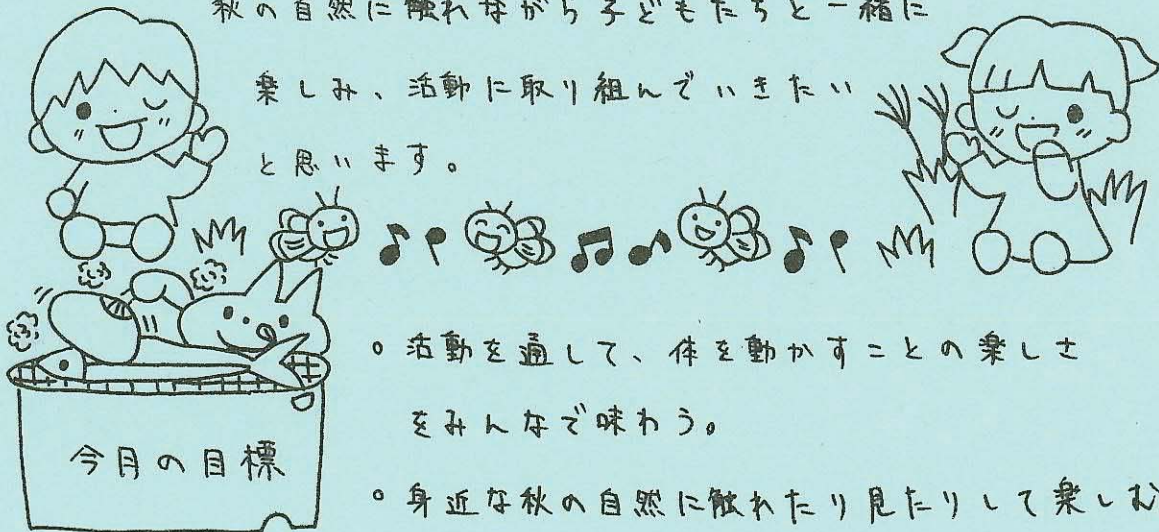 秋の自然に触れながら子どもたちと一緒に
楽しみ、活動に取り組んでいきたい
と思います。
今月の目標
○活動を通して、体を動かすことの楽しさ
をみんなで味わう。
○身近な秋の自然に触れたり見たりして楽しむ